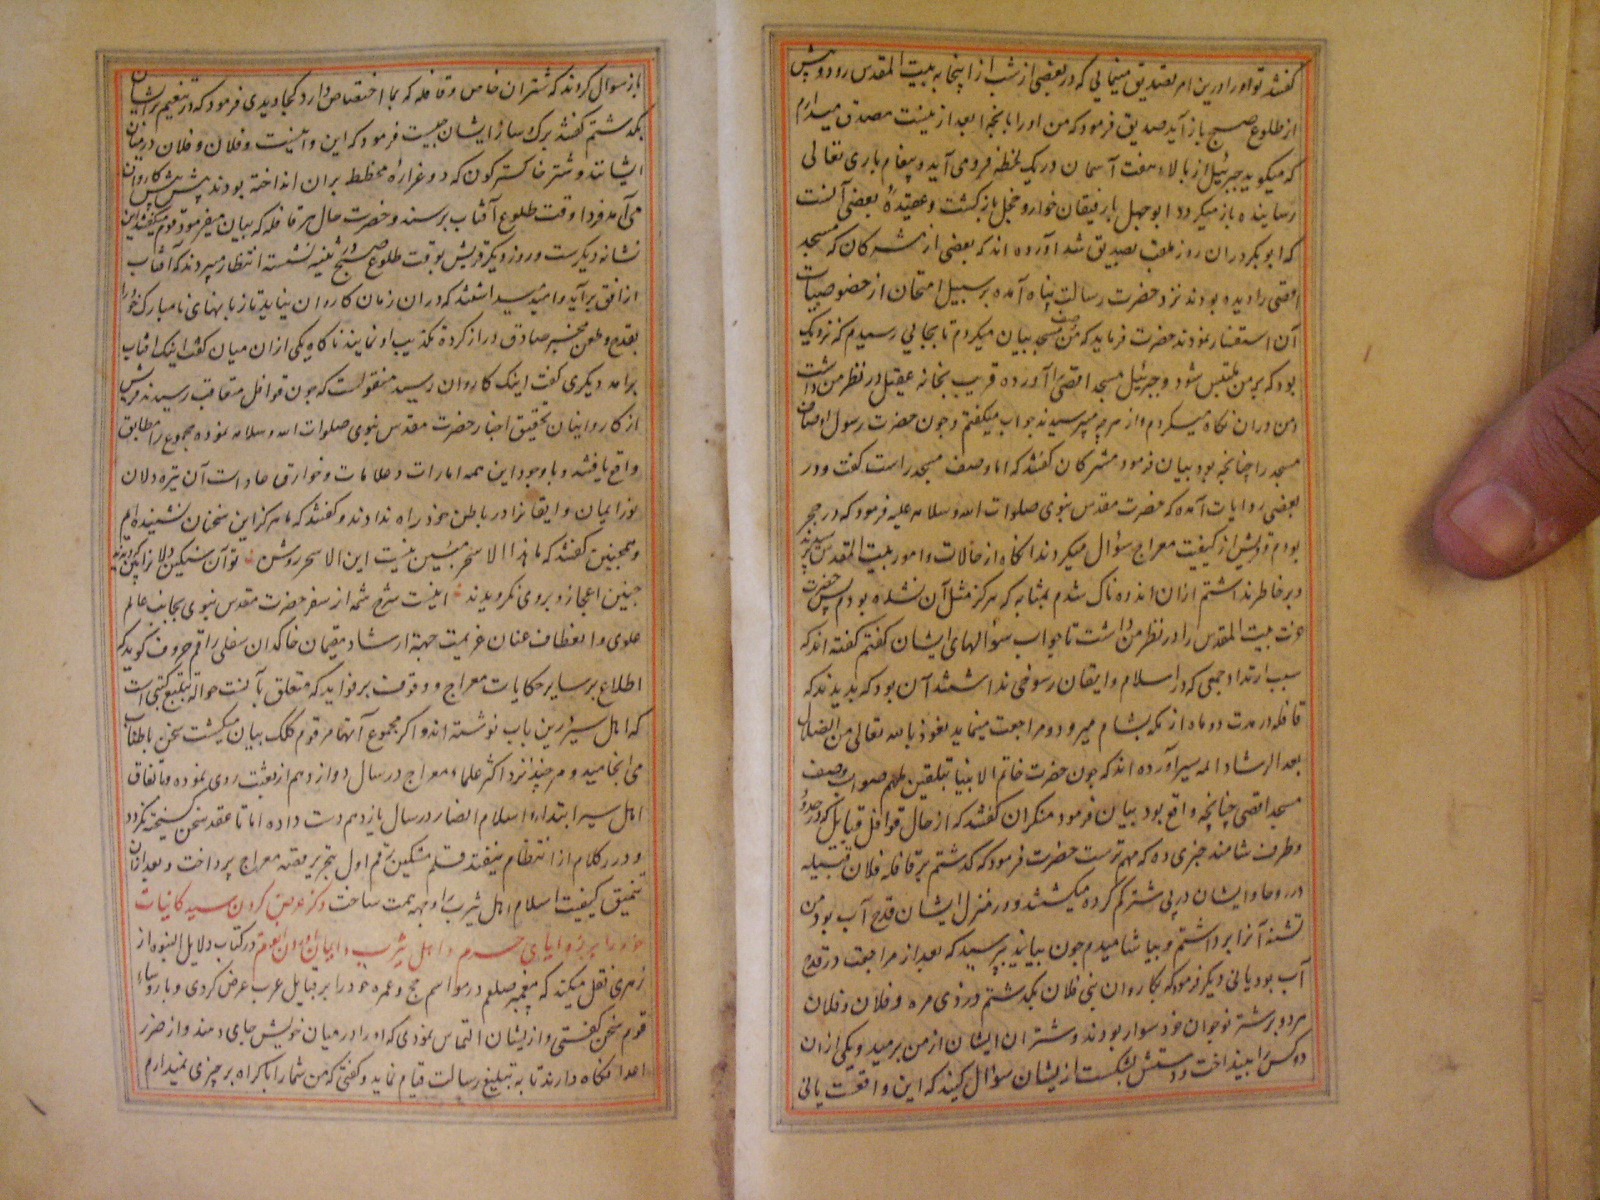 گفتند تو او را درین امر تصدیق مینمائی که در بعضی از شب از اینجا به بیت المقدس رود و پیش
از طلوع صبح باز آید صدیق فرمود که من او را بآنچه ابعد ازینست مصدق میدارم
که میکوید جبرئیل از بالاء هفت آسمان در یک لحظه فرو می آید و پیغام باری تعالی
رسانیده باز میکردد ابوجهل با رفیقان خوار و خجل باز کشت و عقیدهٔ بعضی آنست
که ابوبکر دران روز ملقب بصدیق شد آورده اند که بعضی از مشرکان که مسجد
اقصی را دیده بودند نزد حضرت رسالت پناه آمده بر سبیل امتحان از خصوصیات
آن استفسار نمودند حضرت فرماید که من وصف مسجد بیان میکردم تا بجائی رسیدم که نزدیک
بود که بر من ملتبس شود و جبرئیل مسجد اقصی را آورده قریب بخانه عقیل در نظر من داشت
و من دران نکاه میکردم و از هر چه میپرسیدند جواب میکفتم و چون حضرت رسول اوصاف
مسجد را چنانچه بود بیان فرمود مشرکان کفتند که اما وصف مسجد راست کفت و در
بعضی روایات آمده که حضرت مقدس نبوی صلوات الله و سلامه علیه فرمود که در حجر
بودم و قریش از کیفیت معراج سؤال میکردند انکاه از حالات و امور بیت المقدس پرسیدند
و بر خاطر نداشتم ازان اندوه ناک شدم بمثابه که هرکز مثل آن نشده بودم پس حضرت
عزت بیت المقدس را در نظر من داشت تا جواب سؤالهای ایشان کفتم کفته اند که
سبب ارتداد جمعی که در اسلام و ایقان رسوخی نداشتند آن بود که بدیدند که
قافله در مدت دو ماه از مکه بشام میرود و مراجعت مینماید نعوذ بالله تعالی من الضلال
بعد الرشاد ائمه سیر آورده اند که چون حضرت خاتم الانبیا بتلقین ملهم صواب وصف
مسجد اقصی چنانچه واقع بود بیان فرمود منکران کفتند که از حال قوافل قبایل که در حدود
و طرف شامند خبری ده که مهم ترست حضرت فرمود که کذشتم بر قافله فلان قبیله
در روحا و ایشان در پی شتر کم کرده میکشتند و در منزل ایشان قدح آب بود من
تشنه آنرا برداشتم و بیاشامیدم چون بیایند بپرسید که بعد از مراجعت در قدح
آب بود یا نی دیکر فرمود که بکاروان بنی فلان بکذشتم در ذی مره و فلان و فلان
هر دو بر شتر نوجوان خود سوار بودند و شتران ایشان از من برمید و یکی ازان
دو کس را بینداخت و دستش بشکست از یشان سؤال کنید که این واقعست یا نی
باز سوال کردند که شتران خاص و قافله که بما اختصاص دارد کجا دیدی فرمود که در تنعیم بر ایشان
بکذشتم کفتند برک و ساز ایشان چیست فرمود که این و اینست و فلان و فلان در میان
ایشانند و شتر خاکستر کون که دو غرارهٔ مخطط بران انداخته بودند پیش پیش کاروان
می آمد فردا وقت طلوع آفتاب برسند و حضرت حال هر قافله که بیان میفرمود قوم میکفتند این
نشانه دیکرست و روز دیکر قریش بوقت طلوع صبح بثنیه نشسته انتظار میبردند که آفتاب
از افق برآید و امید میداشتند که دران زمان کاروان نیاید تا زبانهای نامبارک خود را
بقدح و طعن مخبر صادق دراز کرده تکذیب او نمایند ناکاه یکی ازان میان کفت اینک آفتاب
برآمد دیکری کفت اینک کاروان رسید منقولست که چون قوافل متعاقب رسیدند قریش
از کاروانیان تحقیق اخبار حضرت مقدس نبوی صلوات الله و سلامه نموده مجموع را مطابق
واقع یافتند و با وجود این همه امارات و علامات و خوارق عادات آن تیره دلان
نور ایمان و ایقان را در باطن خود راه ندادند و کفتند که ما هرکز این سخنان نشنیده ایم
و همچنین کفتند که ما هذا الا سحر مبین نیست این الا سحر روشن تو آن سنکین دلانرا بین که دیدند
چنین اعجاز و بروی نکرویدند اینست شرح شمه از سفر حضرت مقدس نبوی بجانب عالم
علوی و انعطاف عنان عزیمت جهة ارشاد مقیمان خاکدان سفلی راقم حروف کوید که
اطلاع بر سایر حکایات معراج و وقوف بر فواید که متعلق بآنست حواله بتتبع کتبی است
که اهل سیر درین باب نوشته اند و اکر مجموع آنها مرقوم کلک بیان میکشت سخن باطناب
می انجامید و هر چند نزد اکثر علماء معراج در سال دوازدهم از بعثت روی نموده و باتفاق
اهل سیر ابتداء اسلام انصار در سال یازدهم دست داده اما تا عقد سخن کسیخته نکردد
و درر کلام از انتظام نیفتد قلم مشکین رقم اول بتحریر قصه معراج پرداخت و بعد ازان
تنمیق کیفیت اسلام اهل یثرب را وجهه همت ساخت ذکر عرض کردن سید کاینات
خود را بر زوایای حرم و اهل یثرب و ایمان آوردن در کتاب دلایل النبوه از
زهری نقل میکند که پیغمبر صلعم در مواسم حج و عمره خود را بر قبایل عرب عرض کردی و با رؤسای
قوم سخن کفتی و ازیشان التماس نمودی که او را در میان خویش جای دهند و از ضرر
اعدا نکاه دارند تا به تبلیغ رسالت قیام نماید و کفتی که من شما را باکراه بر چیزی نمیدارم